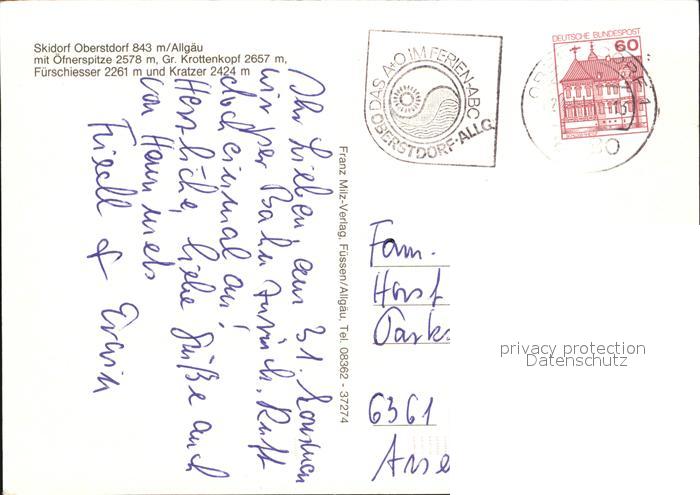 Skidorf Oberstdorf 843 m/Allgäu
mit Öfnerspitze 2578 m, Gr. Krottenkopf 2657 m,
Fürschiesser 2261 m und Kratzer 2424 m
DAS A+O IM FERIEN-ABC
OBERSTDORF-ALLG.
DEUTSCHE BUNDESPOST
60
Ihr Lieben, am 31. kommen
wir per Bahn zurück. Ruft
doch einmal an!
Herzliche, liebe Grüße auch
von Hammels
Friedl & Erwin
Franz Milz-Verlag, Füssen/Allgäu, Tel. 08362 - 37274
Fam.
Horst
Park
6361
privacy protection
Datenschutz